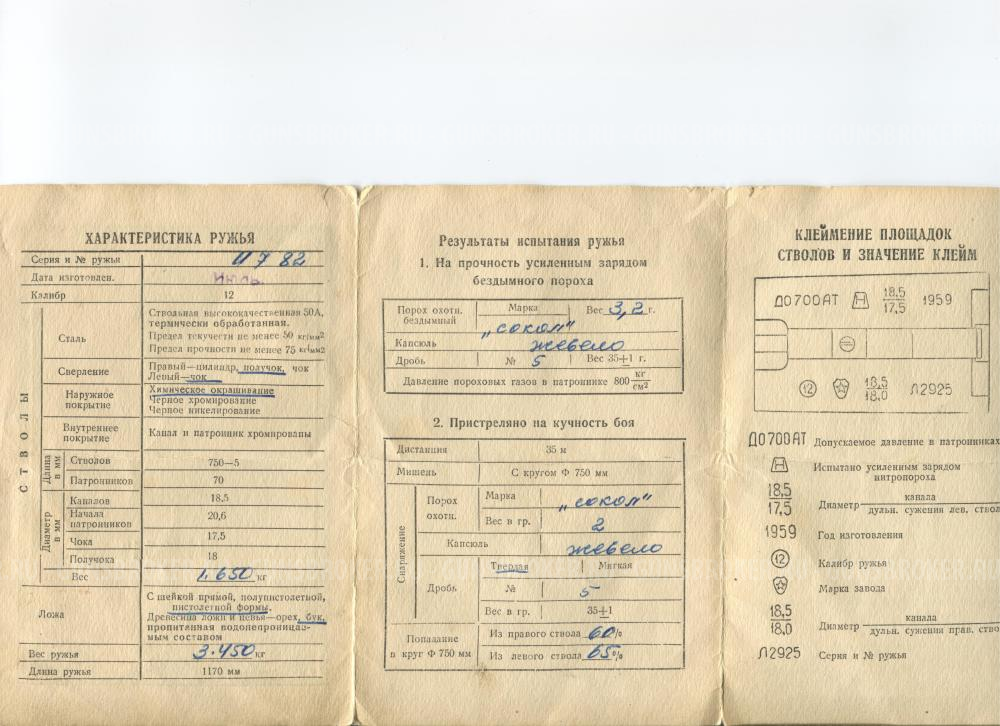 ХАРАКТЕРИСТИКА РУЖЬЯ
Серия и № ружья
И 7 82
Дата изготовлен.
Июль
Калибр
12
СТВОЛЫ
Сталь
Ствольная высококачественная 50А,
термически обработанная.
Предел текучести не менее 50 кг/мм2
Предел прочности не менее 75 кг/мм2
Сверление
Правый—цилиндр, получок, чок
Левый—чок
Наружное
покрытие
Химическое окрашивание
Черное хромирование
Черное никелирование
Внутреннее
покрытие
Канал и патронник хромированы
Длина
в мм
Стволов
750—5
Патронников
70
Диаметр
в мм
Каналов
18,5
Начала
патронников
20,6
Чока
17,5
Получока
18
Вес
1.650 кг
Ложа
С шейкой прямой, полупистолетной,
пистолетной формы.
Древесина ложи и цевья—орех, бук,
пропитанная водонепроницае-
мым составом
Вес ружья
3.450 кг
Длина ружья
1170 мм
Результаты испытания ружья
1. На прочность усиленным зарядом
бездымного пороха
Порох охотн.
бездымный
Марка
„сокол"
Вес 3,2 г.
Капсюль
жевело
Дробь
№ 5
Вес 35±1 г.
Давление пороховых газов в патроннике 800 кг/см2
2. Пристреляно на кучность боя
Дистанция
35 м
Мишень
С кругом Ф 750 мм
Снаряжение
Порох
охотн.
Марка
„сокол"
Вес в гр.
2
Капсюль
жевело
Дробь
Твердая
Мягкая
№
5
Вес в гр.
35±1
Попадание
в круг Ф 750 мм
Из правого ствола 60%
Из левого ствола 65%
КЛЕЙМЕНИЕ ПЛОЩАДОК
СТВОЛОВ И ЗНАЧЕНИЕ КЛЕЙМ
Д0700АТ
18,5
17,5
1959
12
18,5
18,0
Л2925
Д0700АТ Допускаемое давление в патронниках
Испытано усиленным зарядом
нитропороха
18,5
17,5
Диаметр
канала
дульн. сужения лев. ствол
1959 Год изготовления
12 Калибр ружья
Марка завода
18,5
18,0
Диаметр
канала
дульн. сужения прав. ство
Л2925 Серия и № ружья